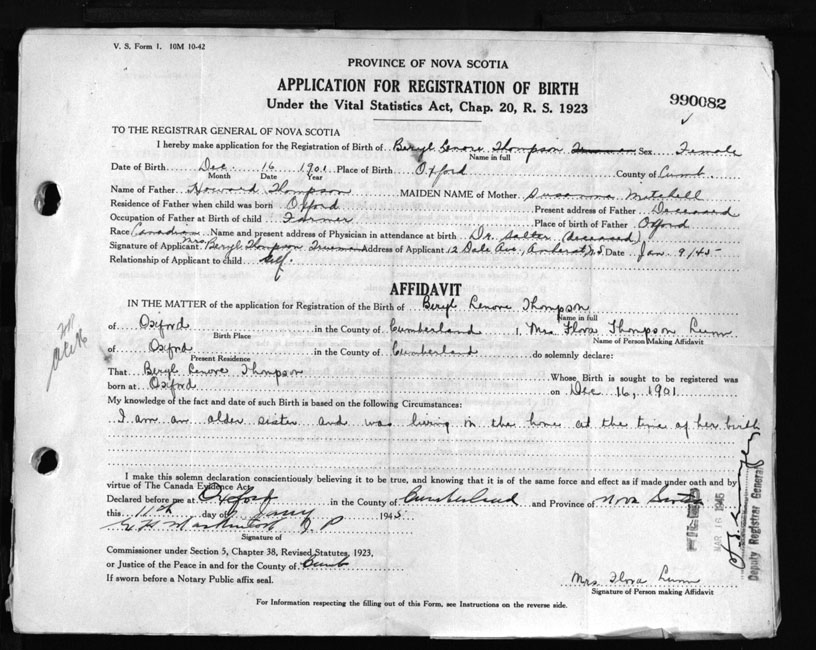 V. S. Form 1. 10M 10-42
PROVINCE OF NOVA SCOTIA
APPLICATION FOR REGISTRATION OF BIRTH
Under the Vital Statistics Act, Chap. 20, R. S. 1923
990082
TO THE REGISTRAR GENERAL OF NOVA SCOTIA
I hereby make application for the Registration of Birth of Beryl Lenore Thompson Trueman Sex Female
Name in full
Date of Birth Dec 16 1901 Place of Birth Oxford County of Cumb.
Month Date Year
Name of Father Howard Thompson MAIDEN NAME of Mother Susanna Mitchell
Residence of Father when child was born Oxford Present address of Father Deceased
Occupation of Father at Birth of child Farmer Place of birth of Father Oxford
Race Canadian Name and present address of Physician in attendance at birth Dr. Salter (deceased)
Signature of Applicant Mrs Beryl Thompson Trueman Address of Applicant 12 Dale Ave, Amherst N.S. Date Jan. 9/45-
Relationship of Applicant to child Self.
AFFIDAVIT
IN THE MATTER of the application for Registration of the Birth of Beryl Lenore Thompson
Name in full
of Oxford in the County of Cumberland I, Mrs Flora Thompson Lunn
Birth Place Name of Person Making Affidavit
of Oxford in the County of Cumberland do solemnly declare:
Present Residence
That Beryl Lenore Thompson Whose Birth is sought to be registered was
born at Oxford on Dec 16, 1901
My knowledge of the fact and date of such Birth is based on the following Circumstances:
I am an older sister and was living in the home at the time of her birth
I make this solemn declaration conscientiously believing it to be true, and knowing that it is of the same force and effect as if made under oath and by
virtue of The Canada Evidence Act.
Declared before me at Oxford in the County of Cumberland and Province of Nova Scotia
this 11th day of 1945
J P
Signature of
Commissioner under Section 5, Chapter 38, Revised Statutes, 1923,
or Justice of the Peace in and for the County of Cumb
If sworn before a Notary Public affix seal.
Mrs. Flora Lunn
Signature of Person making Affidavit
For Information respecting the filling out of this Form, see Instructions on the reverse side.
FILED
MAR 16 1945
Deputy Registrar General